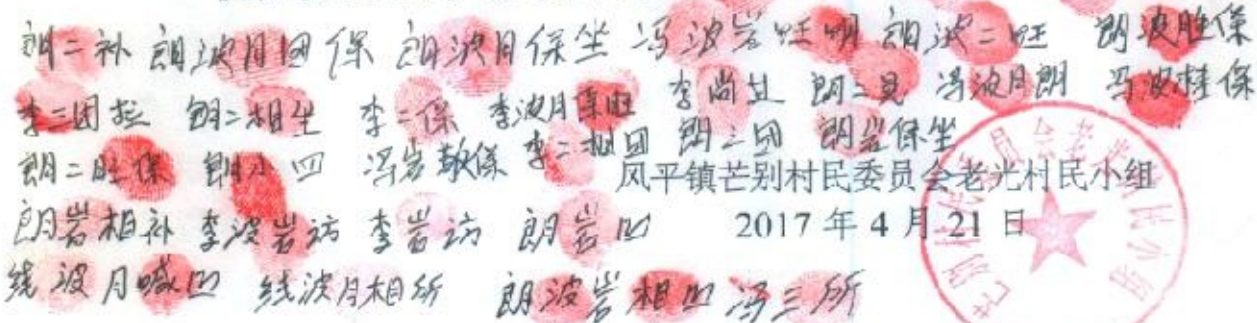 朗二补 朗波月团保 朗波月保坐 冯波岩旺明 朗波二旺 朗波胜保
李二团拉 朗二相生 李二保 李波月保旺 李尚过 朗三見 冯波月朗 冯波桂保
朗二胜保 朗小四 冯岩敏保 李二相团 朗三团 朗岩保坐
凤平镇芒别村民委员会老光村民小组
朗岩相补 李波岩访 李岩访 朗岩凹
2017 年 4 月 21 日
线波月喊凹 线波月相所 朗波岩相凹 冯三所